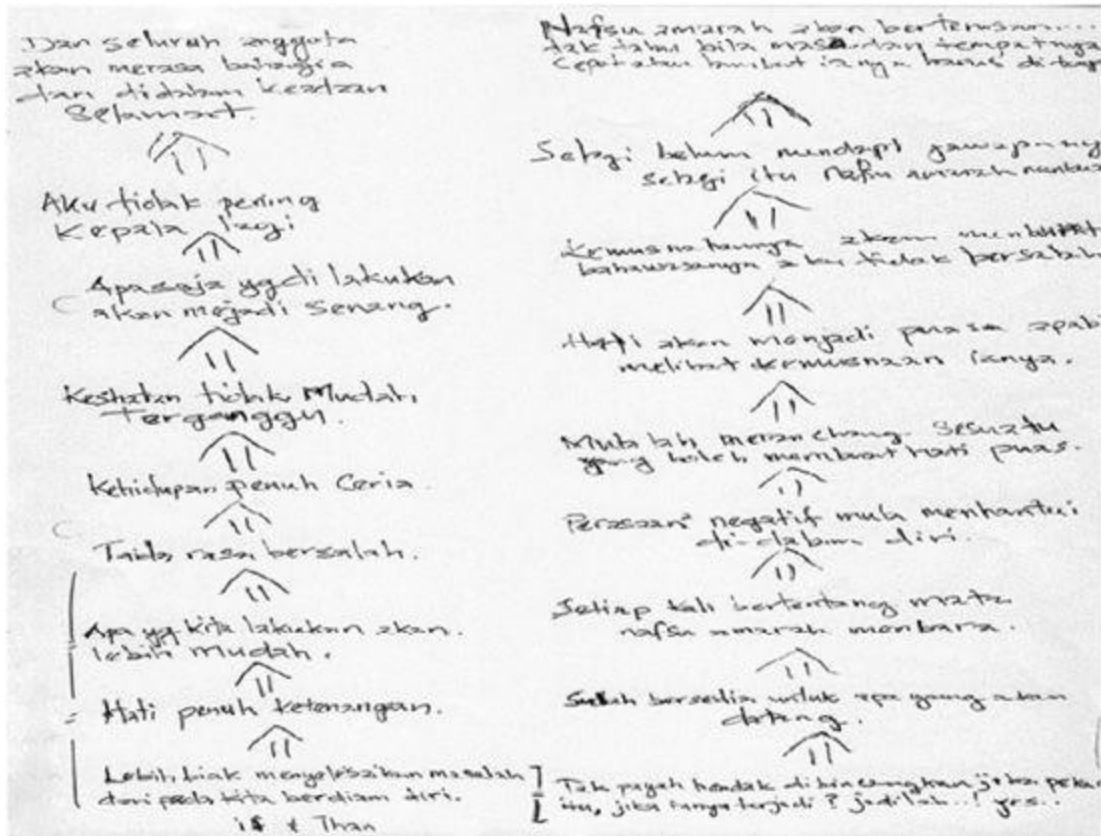 Dan seluruh anggota
akan merasa bahagia
dan didalam keadaan
Selamat.
Aku tidak pening
Kepala lagi
Apasaja yg di lakukan
akan mejadi Senang.
Kesihatan tidak Mudah
Terganggu.
Kehidupan penuh Ceria.
Tiada rasa bersalah.
Apa yg kita lakukan akan
lebih mudah.
Hati penuh ketenangan.
Lebih biak menyelesaikan masalah
daripada kita berdiam diri.
if & Than
Nafsu amarah akan berterusan.....
tak tahu bila masa dan tempatnya
Cepat atau lambat ianya harus di
Selagi belum mendapt jawapannya
selagi itu Nafsu amarah
Kemusnahannya akan
bahawasanya aku tidak bersalah
Hati akan menjadi puasa
melihat kemusnaan ianya.
Mula lah meranchang Sesuatu
yang boleh membuat hati puas.
Perasaan negatif mula menhantui
di-dalam diri.
Setiap kali bertentang mata
nafsu amarah menbara.
Sudah bersedia untuk apa yang akan
datang.
Tak payah hendak di bincangkan jika
itu, jika ianya terjadi? jadilah..! yes..